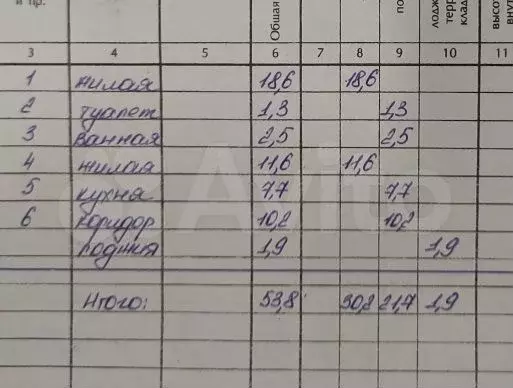 и пр.
Общая
по
лодж
терр
клад
высо
внут
3 4 5 6 7 8 9 10 11
1 жилая 18,6 18,6
2 туалет 1,3 1,3
3 ванная 2,5 2,5
4 жилая 11,6 11,6
5 кухня 7,7 7,7
6 коридор 10,2 10,2
лоджия 1,9 1,9
Итого: 53,8 30,2 21,7 1,9
Avito